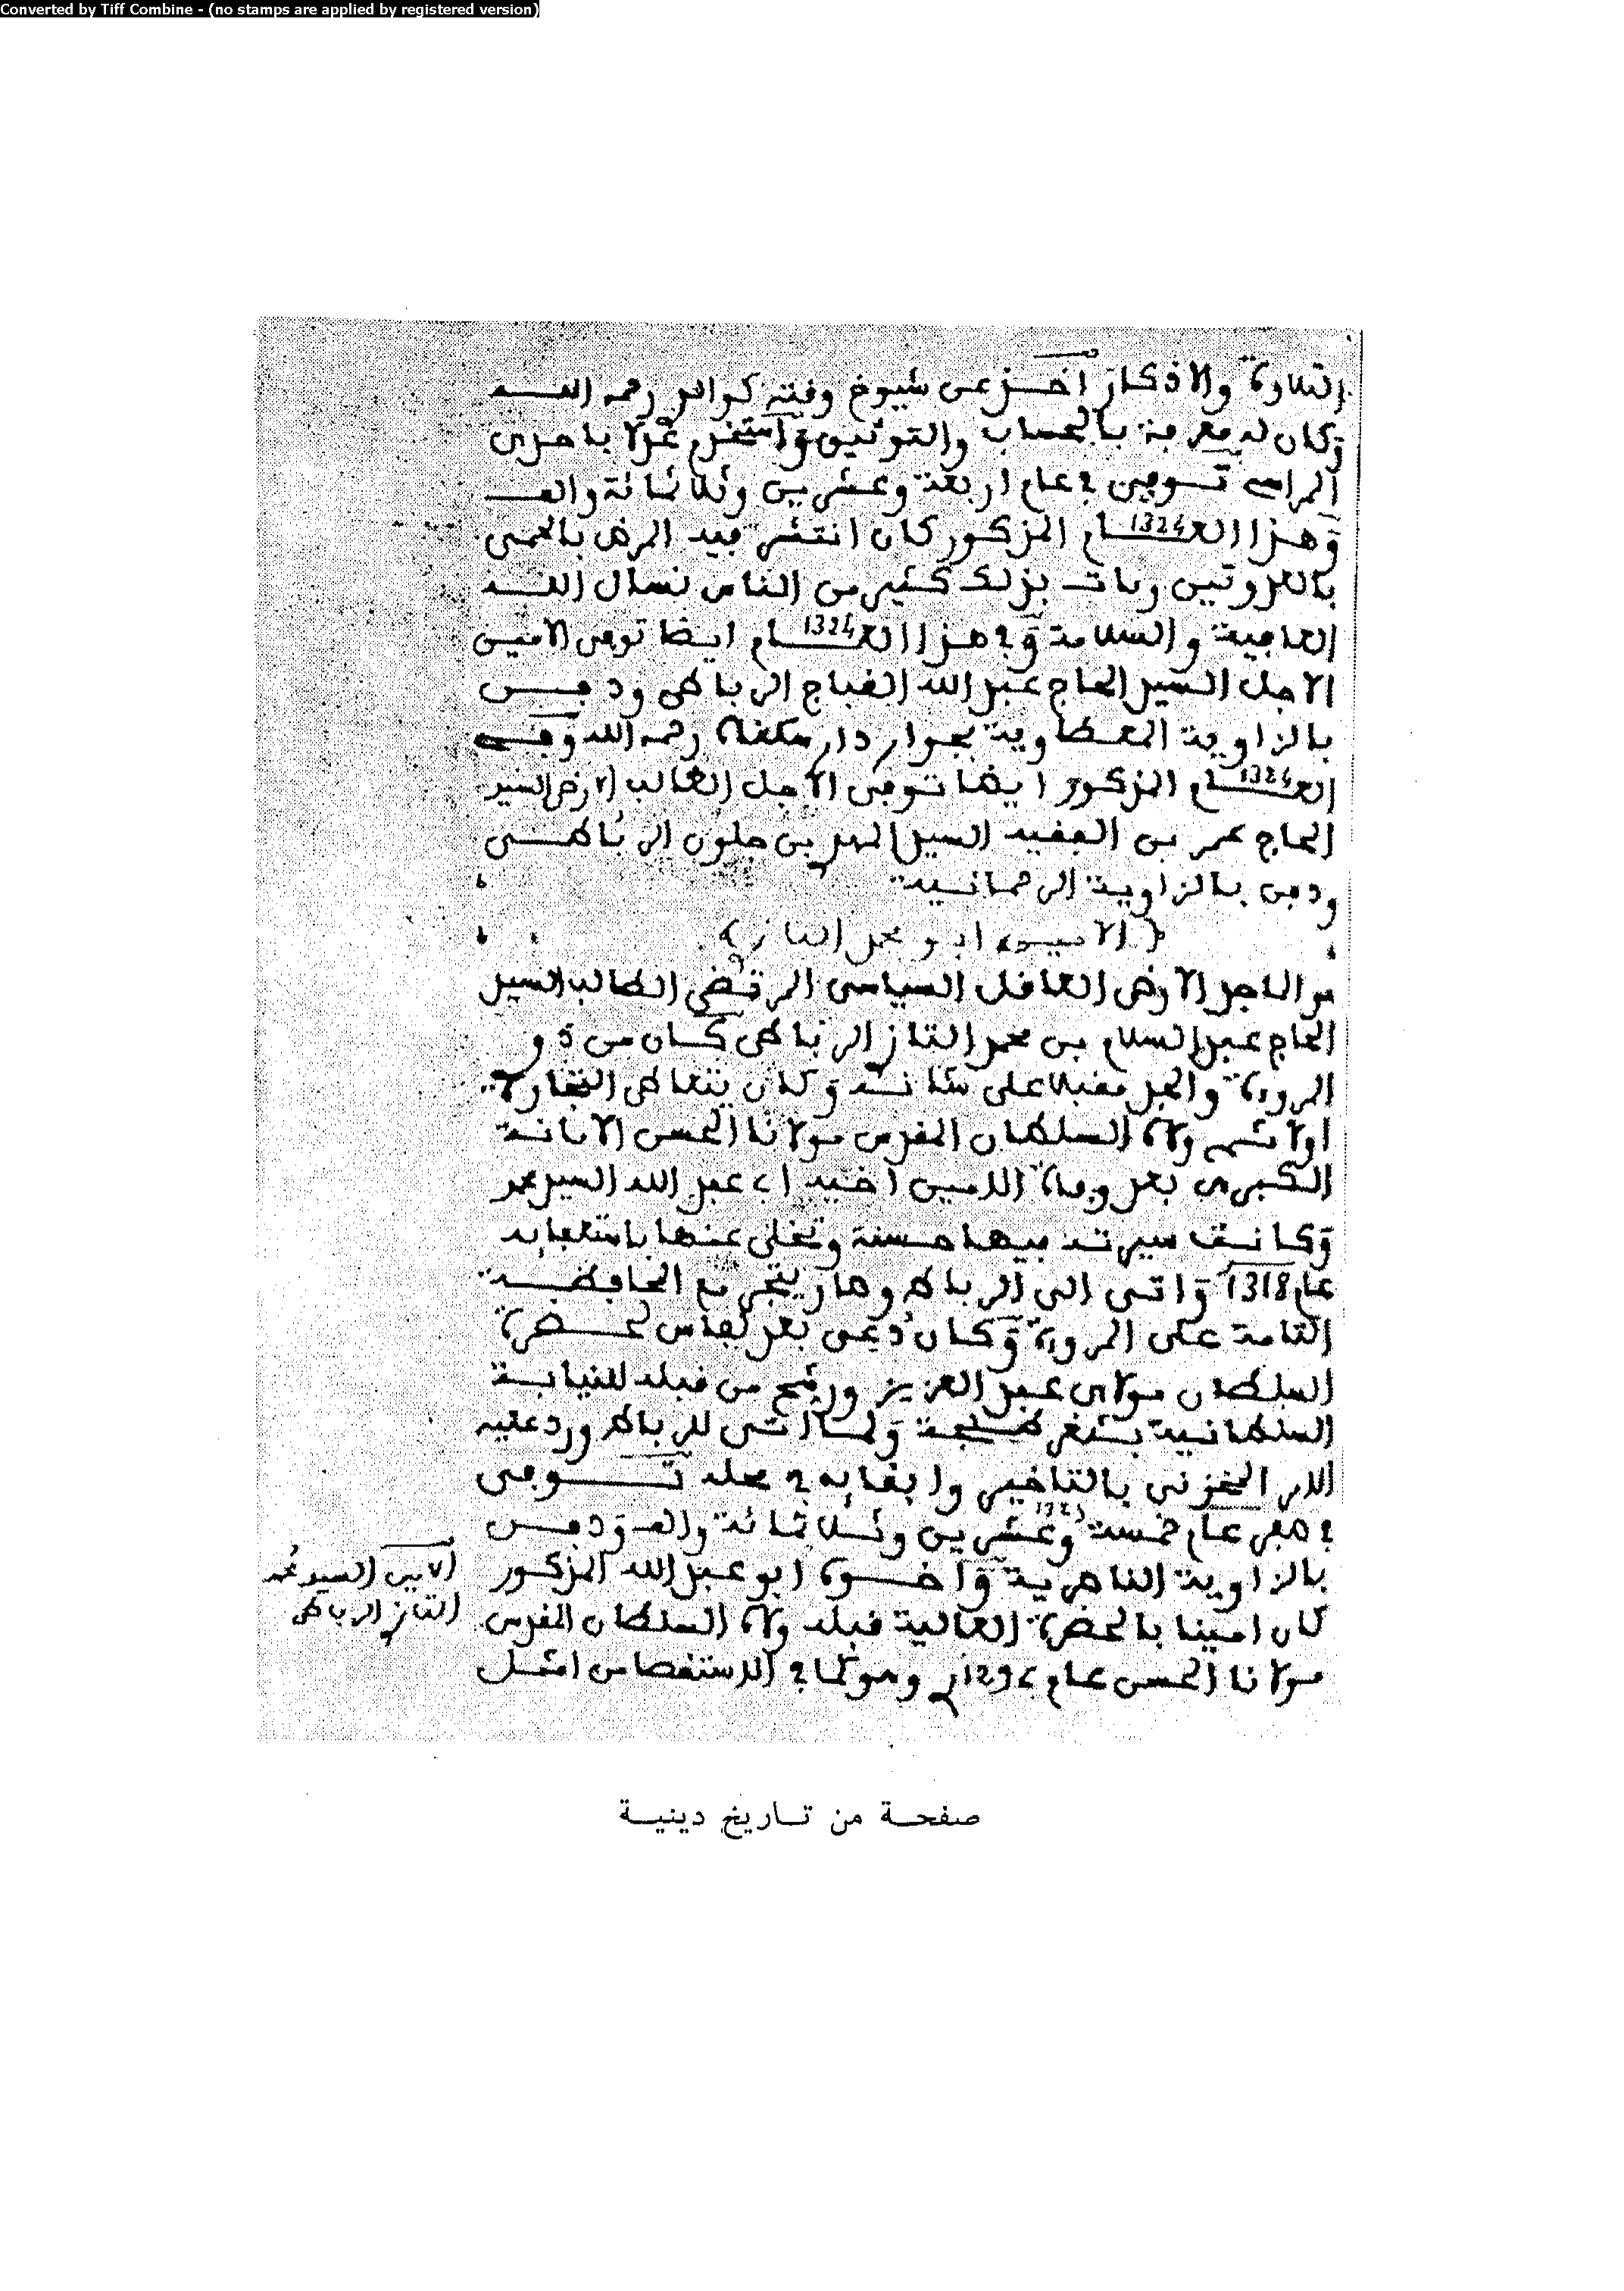 Converted by Tiff Combine - (no stamps are applied by registered version)
التلاوة والاذكار أخذ عن شيوخ وقته كوالده رحمه الله
وكان له معرفة بالحساب والتوثيق واستخدم عدلا باحدى
المراسي توفي في عام اربعة وعشرين وثلاثمائة والف
1324
وهذا العام المذكور كان انتشر فيه المرض بالحمى
ومات بذلك كثير من الناس نسأل الله
1324
العافية والسلامة وفي هذا العام ايضا توفي الامين
الاجل السيد الحاج عبد الله القباج الرباطي ودفن
بالزاوية المعطاوية بجوار دار سكناه رحمه الله وفي
1324
العام المذكور ايضا توفي الاجل الطالب الارضى السيد
الحاج عمر بن الفقيه السيد المهدي بن جلون الرباطي
ودفن بالزاوية الرحمانية
(الامين ابو محمد التاز)
هو الماجد الارضى العاقل السياسي المرتضى الطالب السيد
الحاج عبد السلام بن محمد التاز الرباطي كان من ذو
المروءة والجد مقبلا على شانه وكان يتعاطى التجارة
اولا ثم ولاه السلطان المقدس مولانا الحسن الامانة
الكبرى بعد وفاة الامين اخيه ابي عبد الله السيد محمد
وكانت سيرته فيها حسنة وتخلى عنها باستعفائه
عام 1318 واتى الى الرباط وصار يتجر مع المحافظة
التامة على المروءة وكان دعي بعد لفاس لحضرة
السلطان مولاي عبد العزيز ورشح من قبله للنيابة
السلطانية بثغر طنجة ولما اتى للرباط ورد عليه
الامر المخزني بالتاخير وابقائه في محله توفي
1325
في صفر عام خمسة وعشرين وثلاثمائة والف ودفن
بالزاوية الناصرية واخوه ابو عبد الله المذكور
كان امينا بالحضرة العالية قبله ولاه السلطان المقدس
مولانا الحسن عام 1296 وهو كما في الاستقصا من امثل
الامين السيد محمد
التاز الرباطي
صفحة من تاريخ دينية